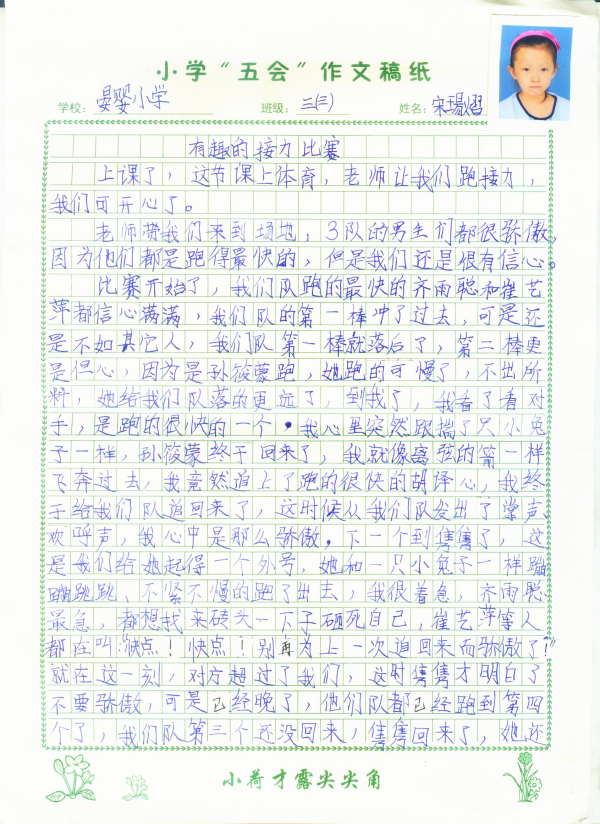 小学“五会”作文稿纸
学校：晏婴小学 班级：三(三) 姓名：宋璟熠
有趣的接力比赛
上课了，这节课上体育，老师让我们跑接力，
我们可开心了。
老师带我们来到场地，3队的男生们都很骄傲，
因为他们都是跑得最快的，但是我们还是很有信心。
比赛开始了，我们队跑的最快的齐雨聪和崔艺
萍都信心满满，我们队的第一棒冲了过去，可是还
是不如其它人，我们队第一棒就落后了，第二棒更
是但心，因为是孙筱蒙跑，她跑的可慢了，不出所
料，她给我们队落的更远了，到我了，我看了看对
手，是跑的很快的一个，我心里突然跟揣了只小兔
子一样，孙筱蒙终于回来了，我就像离弦的箭一样
飞奔过去，我竟然追上了跑的很快的胡译心，我终
于给我们队追回来了，这时候从我们队发出了掌声
欢呼声，我心中是那么骄傲。下一个到隽隽了，这
是我们给她起得一个外号，她和一只小兔子一样蹦
蹦跳跳、不紧不慢的跑了出去，我很着急，齐雨聪
最急，都想找来砖头一下子砸死自己，崔艺萍等人
都在叫“快点！快点！别再为上一次追回来而骄傲了！”
就在这一刻，对方超过了我们，这时隽隽才明白了
不要骄傲，可是已经晚了，他们队都已经跑到第四
个了，我们队第三个还没回来，隽隽回来了，她还
小荷才露尖尖角